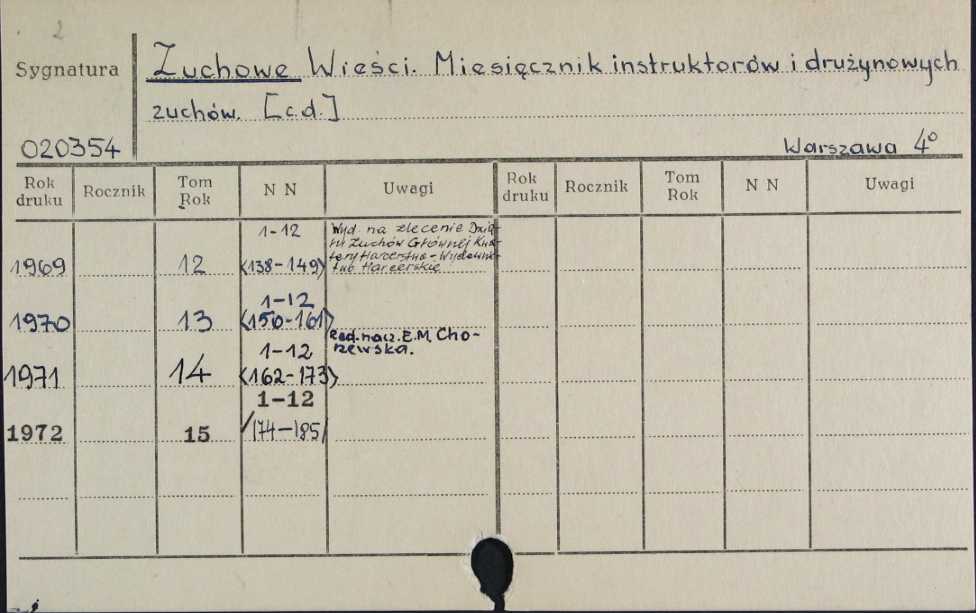 Sygnatura
Zuchowe Wieści. Miesięcznik instruktorów i drużynowych
zuchów. [c.d.]
020354
Warszawa 4⁰
Rok druku Rocznik Tom Rok N N Uwagi Rok druku Rocznik Tom Rok N N Uwagi
1-12 Wyd. na zlecenie
Zuchów Głównej Kwa-
tery Harcerstwa - Wydawnic-
1969 12 <138-149> two Harcerskie
1-12
1970 13 <150-161>
Red. nacz. E.M. Cho-
1-12 rzewska.
1971 14 <162-173>
1-12
1972 15 /174-185/